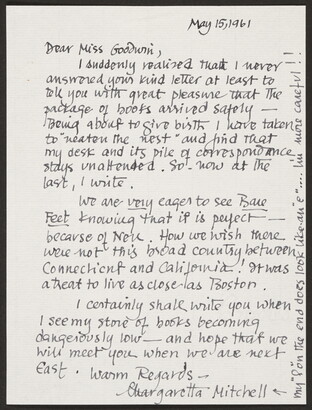 May 15, 1961
Dear Miss Goodwin,
I suddenly realized that I never
answered your kind letter at least to
tell you with great pleasure that the
package of books arrived safely —
Being about to give birth I have taken
to "neaten the nest" and find that
my desk and its pile of correspondence
stays unattended. So now at the
last, I write.
We are very eager to see Bare
Feet knowing that it is perfect —
because of New. How we wish there
were not this broad country between
Connecticut and California! It was
a treat to live as close as Boston.
I certainly shall write you when
I see my store of books becoming
dangerously low — and hope that we
will meet you when we are next
East. Warm Regards —
Margaretta Mitchell
my "a" on the end does look like an "e".... I'm more careful!!